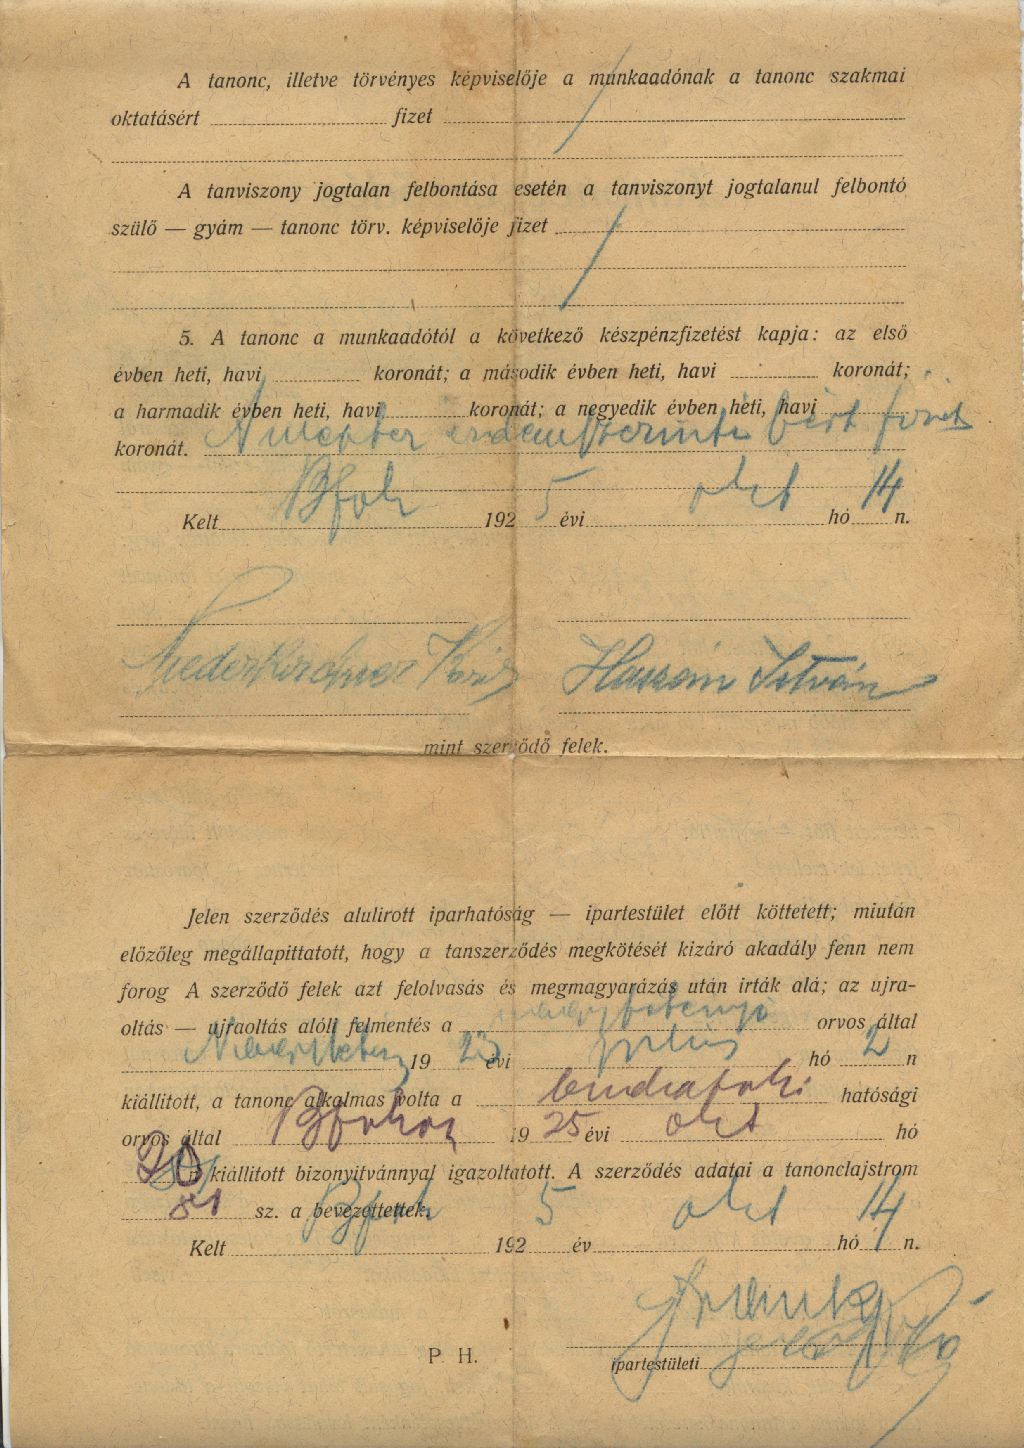 A tanonc, illetve törvényes képviselője a munkaadónak a tanonc szakmai
oktatásért fizet
A tanviszony jogtalan felbontása esetén a tanviszonyt jogtalanul felbontó
szülő — gyám — tanonc törv. képviselője fizet
5. A tanonc a munkaadótól a következő készpénzfizetést kapja: az első
évben heti, havi koronát; a második évben heti, havi koronát;
a harmadik évben heti, havi koronát; a negyedik évben heti, havi
koronát. A mester érdem szerinti bért fizet
Kelt Bfok 1925 évi okt hó 14 n.
Niederkirchner Károly Hasszán István
mint szerződő felek.
Jelen szerződés alulirott iparhatóság — ipartestület előtt köttetett; miután
előzőleg megállapittatott, hogy a tanszerződés megkötését kizáró akadály fenn nem
forog A szerződő felek azt felolvasás és megmagyarázás után irták alá; az ujra-
oltás — ujraoltás alóli felmentés a nagytétényi orvos által
Nagytétény 1923 évi julius hó 2 n
kiállitott, a tanonc alkalmas volta a budafoki hatósági
orvos által Bfokon 1925 évi okt hó
20 n kiállitott bizonyitvánnyal igazoltatott. A szerződés adatai a tanonclajstrom
sz. a bevezettettek.
Kelt Bfok 1925 év okt hó 14 n.
P. H.
ipartestületi jegyző